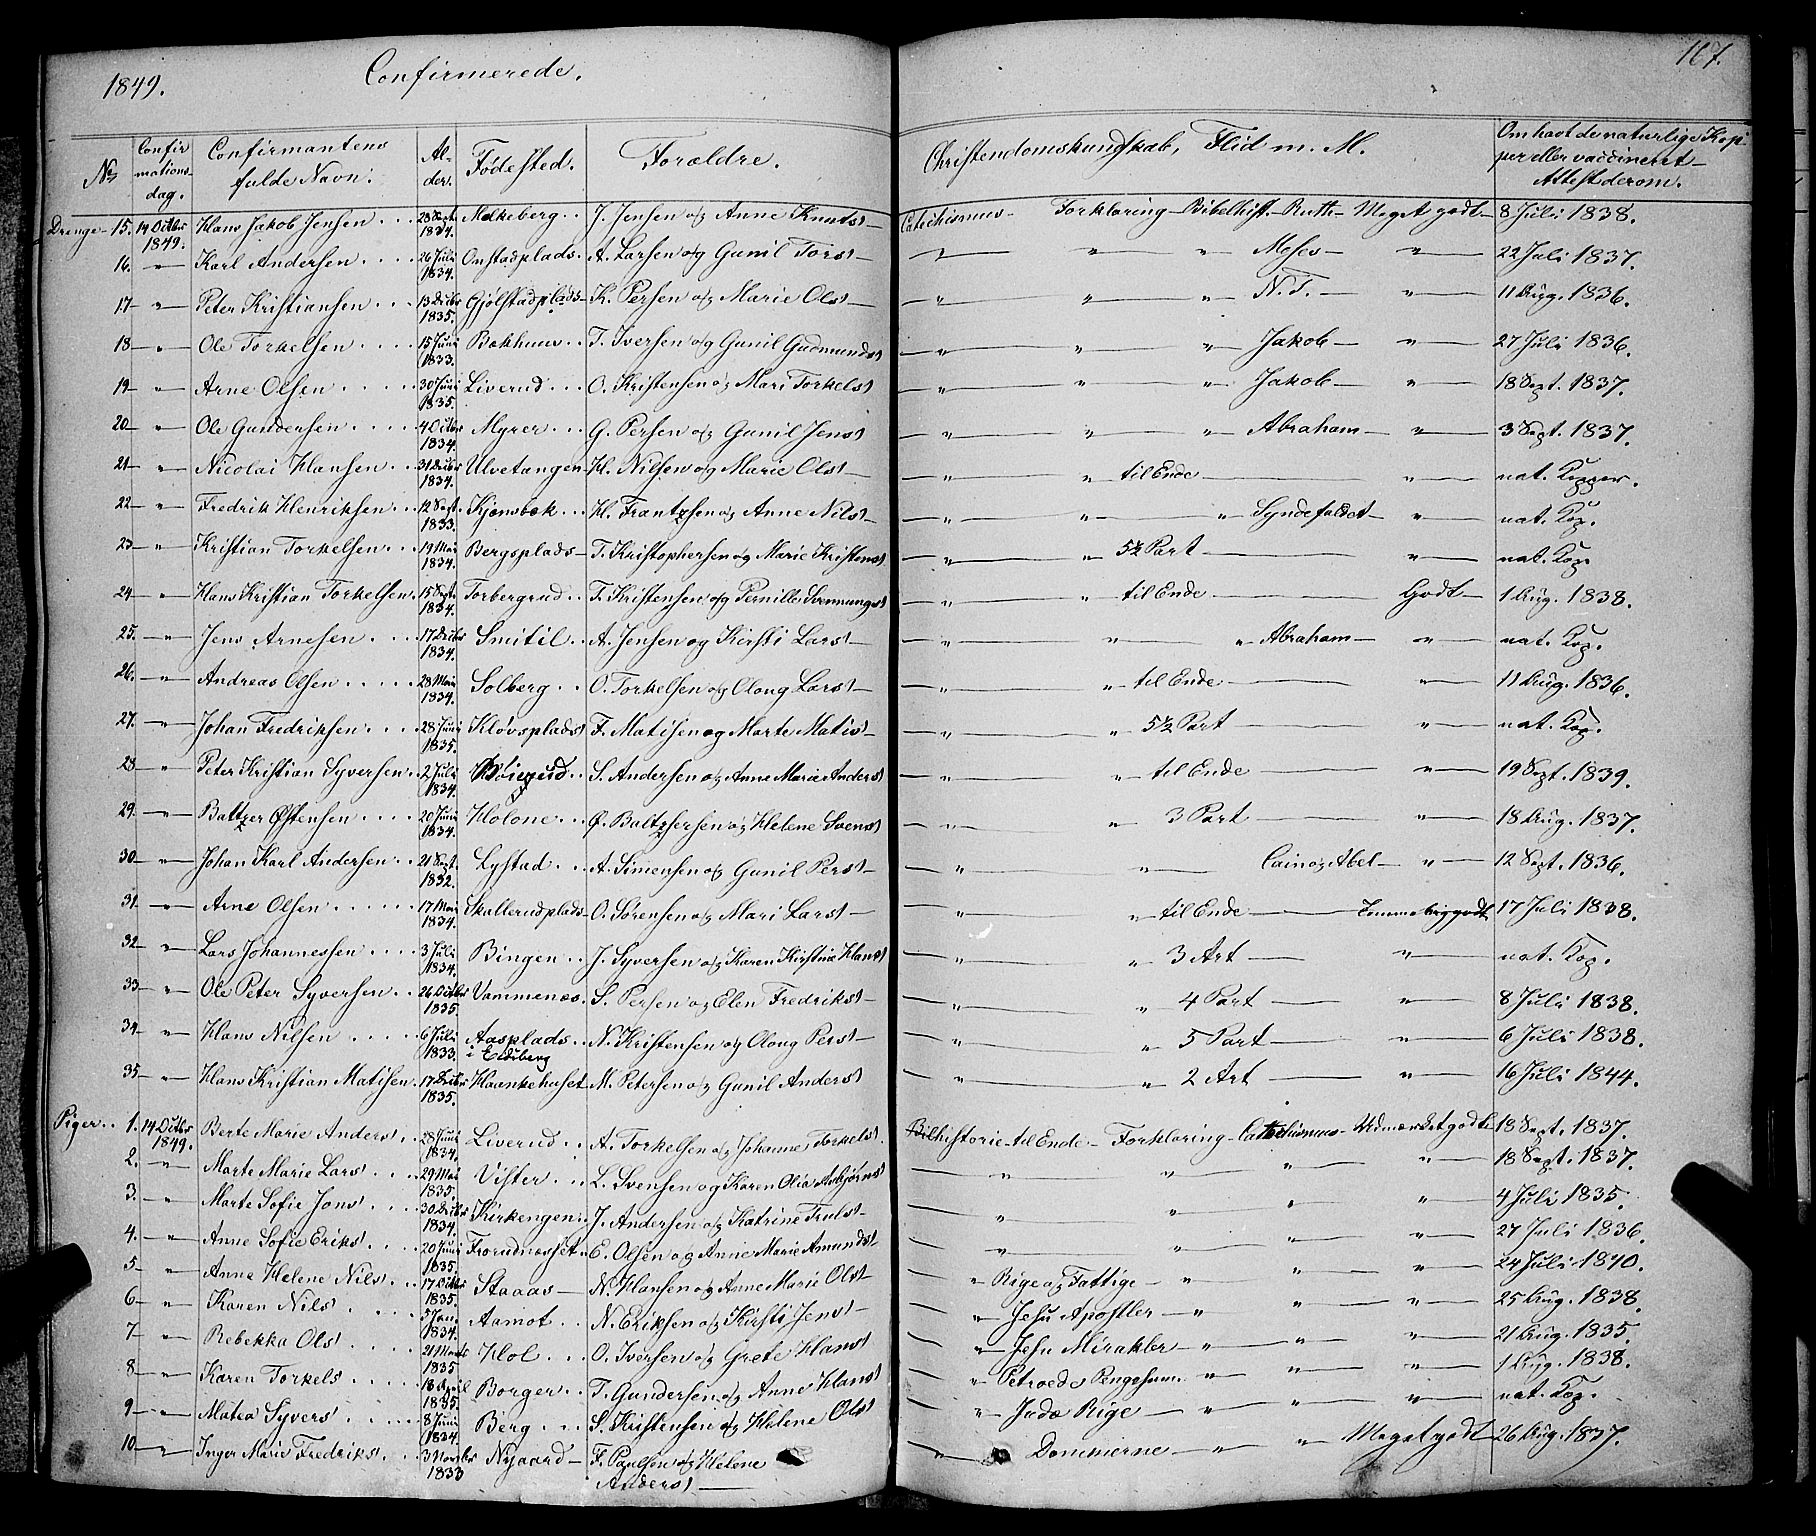 1849. Confirmerede. 167.
No Confirmationsdag. Confirmantens fulde Navn. Alder. Fødested. Forældre. Christendomskundskab, Flid m. M. Om havt de naturlige Kopper eller vaccineret Attest derom.
Drenge 15. 14 Octbr 1849. Hans Jakob Jensen 1834. Melkeberg J. Jensen og Anne Knuts Catechismus Forklaring Bibelhist. Ruth Meget godt 8 Juli 1838.
16. " Karl Andersen 26 Juli 1834. Onstadplads A. Larsen og Gunil Torst " " " Moses " 22 Juli 1837.
17 " Peter Kristiansen 13 Decbr 1835. Gjølstadplads K. Persen og Marie Olst " " " N.T. " 11 Aug. 1836.
18 " Ole Torkelsen 15 Juni 1833. Bækhuus T. Iversen og Gunil Gudmunds " " " Jakob " 27 Juli 1836.
19 " Arne Olsen 30 Juni 1835. Liverud O. Kristensen og Mari Torkelst " " " Jakob " 18 Sept. 1837.
20 " Ole Gundersen 4 Octbr 1834. Myrer G. Persen og Gunil Jenst " " " Abraham " 3 Sept. 1837.
21 " Nicolai Hansen 31 Decbr 1834. Ulvetangen H. Nilsen og Marie Olst " " til Ende " nat. Kopper.
22 " Fredrik Henriksen 12 Sept. 1833. Kjønsbæk H. Frantzsen og Anne Nilst " " " Syndefaldet " nat. Kop.
23 " Kristian Torkelsen 19 Mai 1834. Bergsplads T. Kristophersen og Marie Kristenst " " 5½ Part " nat. Kop.
24 " Hans Kristian Torkelsen 15 Sept. 1834. Torbergrud T. Kristensen og Pernille Svenningst " " til Ende Godt 1 Aug. 1838.
25. " Jens Arnesen 17 Decbr 1834. Smitil A. Jensen og Kirsti Larst " " " Abraham " nat. Kop.
26. " Andreas Olsen 28 Mai 1834. Solberg O. Torkelsen og Olong Larst " til Ende " 11 Aug. 1836.
27. " Johan Fredriksen 28 Juni 1835. Kløvsplads F. Matisen og Marte Matist " " 5½ Part " nat. Kop.
28 " Peter Kristian Syversen 2 Juli 1834. S. Andersen og Anne Marie Anderst " " til Ende " 19 Sept. 1839.
29. " Baltzer Østensen 20 Juni 1834. Holone Ø. Baltzersen og Helene Svenst " " 3 Part " 18 Aug. 1837.
30 " Johan Karl Andersen 21 Sept. 1832. Lystad A. Simensen og Gunil Perst " " Cain og Abel " 12 Sept. 1836.
31 " Arne Olsen 17 Mai 1834. Skallerudplads O. Sørensen og Mari Larst " " til Ende Temmelig godt 17 Juli 1838.
32 " Lars Johannessen 3 Juli 1834. Bingen J. Syversen og Karen Kirstine Hanst " " 3 Art " nat. Kop.
33 " Ole Peter Syversen 26 Octbr 1835. Vammenæs S. Persen og Elen Fredrikst " " 4 Part " 8 Juli 1838.
34 " Hans Nilsen 6 Juli 1833. Aasplads i Eidsberg N. Kristensen og Olong Perst " " 5 Part " 6 Juli 1838.
35 " Hans Kristian Matisen 17 Decbr 1835. Haankehuset M. Petersen og Gunil Anderst " " 2 Art " 16 Juli 1844.
Piger 1. 14 Octbr 1849. Berte Marie Anderst 28 Juni 1834. Liverud A. Torkelsen og Johanne Torkelst Bibhistorie til Ende Forklaring Catechismus Udmærket godt 18 Sept. 1837.
2. " Marte Marie Larst 29 Mai 1835. Vister L. Svensen og Karen Olia Asbjørnst " " " " 18 Sept. 1837.
3. " Marte Sofie Jonst 30 Decbr 1834. Kirkengen J. Andersen og Katrine Trulst " " " " 4 Juli 1835.
4. " Anne Sofie Erikst 20 Juni 1835. Frorudnæsset E. Olsen og Anne Marie Amundst " " " " 27 Juli 1836.
5 " Anne Helene Nilst 17 Octbr 1835. Staaas N. Hansen og Anne Marie Olst " Rige og Fattige " " " 24 Juli 1840.
6 " Karen Nilst 5 Jan. 1834. Aamot N. Eriksen og Kirsti Jenst " Jesu Apostler " " " 25 Aug. 1838.
7 " Rebekka Olst 21 Marts 1835 Hol O. Iversen og Grete Hanst " Jesu Mirakler " " " 21 Aug. 1835.
8 " Karen Torkelst 18 April 1835. Borger T. Gundersen og Anne Hanst " Petri og de Pengesum " " " 1 Aug. 1838.
9 " Matea Syverst 8 Juni 1834. Berg S. Kristensen og Helene Olst " Judæ Rige " " " nat. Kop.
10 " Inger Marie Fredrikst 3 Novbr 1833 Nygaard F. Paulsen og Helene Anderst " Dommerne " " Meget godt 26 Aug. 1837.